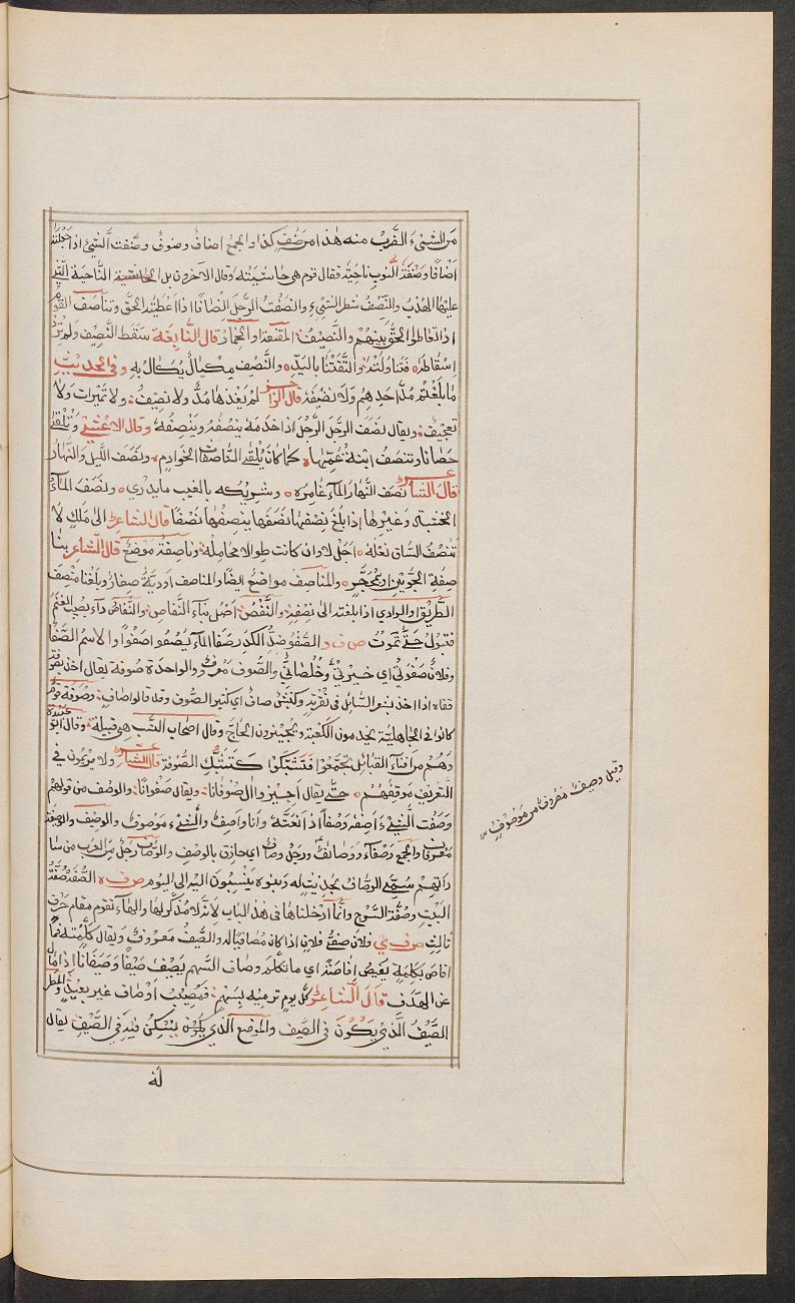 من الشيء الضرب منه هذا من صنف كذا والجمع اصناف وصنوف وصنفت الشيء اذا جعلته
اصنافا وصنفة الثوب ناحيته فقال قوم هي حاشيته وقال الآخرون بل الحاشية الناحية التي
عليها الهدب والنصف شطر الشيء وانصفت الرجل انصافا اذا اعطيته الحق وتناصف القوم
اذا تعاطوا الحق بينهم والنصيف المقنعة او الخمار قال النابغة سقط النصيف ولم ترد
اسقاطه فتناولته واتقتنا باليد والنصف مكيال يكال به وفي الحديث
ما بلغتم مد احدهم ولا نصيفه قال الراجز لم يغذها مد ولا نصيف ولا تميرات ولا
تعجيف ويقال نصف الرجل الرجل اذا خدمه ينصفه وينصفه وقال الاعشى وتلقى
حصانا تنصف ابنة عمها كما كان يلقى الناصفات الخوادم ونصف الليل والنهار
قال الشاعر نصف النهار الماء غامره وشريكه بالغيب ما يدري ونصف الماء
الخشبة وغيرها اذا بلغ نصفها نصفها ينصفها نصفا قال الشاعر الى ملك لا
تنصف الساق نعله اجل لا وان كانت طوالا محامله وناصفة موضع قال الشاعر بنا
صفة الجوين او بمحجر والمناصف مواضع ايضا والمناصف اودية صغار وبلغنا منصف
الطريق والوادي اذا بلغته الى نصفه والنفص اصل بناء النفاص والنفاص داء يصيب الغنم
فتبول حتى تموت ص ف و الصفو ضد الكدر صفا الماء يصفو صفوا والاسم الصفا
وفلان صفوتي اي خيرتي وخلصاني والصوف معروف والواحدة صوفة يقال اخذ بصوفة
قفاه اذا اخذ بشعر السائل في نقرته وكبش صاف اي كثير الصوف وقد قالوا صاف وصوفة قوم
كانوا في الجاهلية يخدمون الكعبة ويجيزون الحاج وقال اصحاب النسب هي قبيلة وقال ابو عبيدة
وهم من افناء القبائل تجمعوا فتشبكوا كتشبك الصوفة قال الشاعر ولا يريمون في
التعريف موقفهم حتى يقال اجيزوا آل صوفانا ويقال صفوانا والوصف من قولهم
وصفت الشيء اصفه وصفا اذا نعته وانا واصف والشيء موصوف والوصيف والوصيفة
معروفان والجمع وصفاء ووصائف ورجل وصاف اي حاذق بالوصف والوصاف رجل من العرب من سا
داتهم سمي الوصاف بحديث له وبنوه ينسبون اليه الى اليوم ص ف ه الصفة صفة
البيت وصفة السرج وانما ادخلناها في هذا الباب لانه لا مذكر لها والهاء تقوم مقام حرف
ثالث ص ف ي فلان صفي فلان اذا كان مصافيا له والصيف معروف ويقال كلمته فما
افاص بكلمة يفيص افاصة اي ما تكلم وصاف السهم يصيف صيفا وصيفانا اذا مال
عن الهدف قال الشاعر كل يوم ترميه بسهم فمصيب او صاف غير بعيد والمطر
الصيف الذي يكون في الصيف والموضع الذي يكون يسكن فيه في الصيف يقال
له
وقيل وصيف مصروف من موصوف